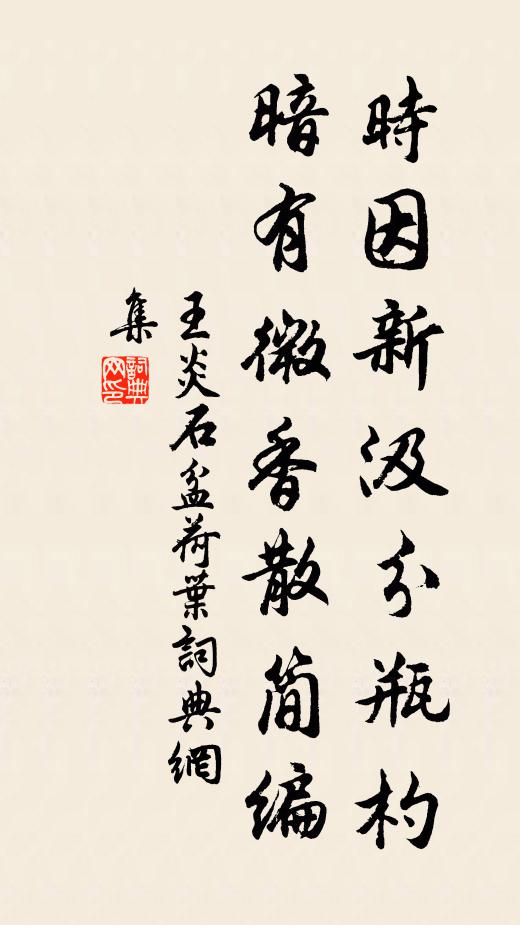 時因新汲分瓶杓
暗有微香散简编
王炎石盆荷葉詞典網
集
詞典网印